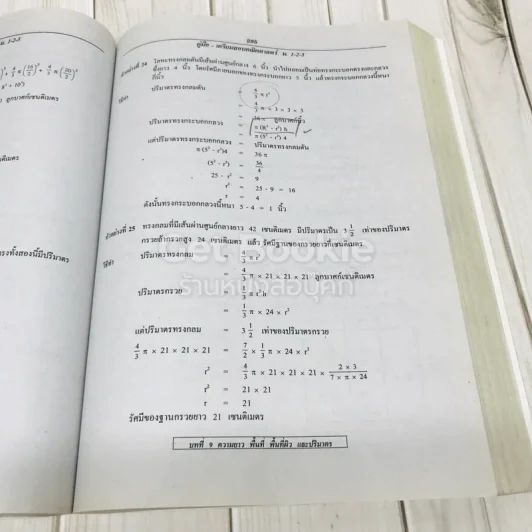 ม. 1-2-3
ลูกบาศก์เซนติเมตร
รงทั้งสองนี้มีปริมาตร
คู่มือ - เตรียมสอบคณิตศาสตร์ ม. 1-2-3
ตัวอย่างที่ 24 โลหะทรงกลมตันมีเส้นผ่านศูนย์กลาง 6 นิ้ว นำไปหลอมเป็นท่อทรงกระบอกตรงและกลวง
ซึ่งยาว 4 นิ้ว โดยรัศมีภายนอกของทรงกระบอกยาว 5 นิ้ว แล้วทรงกระบอกกลวงนี้หนา
กี่นิ้ว
วิธีทำ ปริมาตรทรงกลมตัน = 4/3 π r³
= 4/3 π × 3 × 3 × 3
= 36 π ลูกบาศก์นิ้ว
ปริมาตรทรงกระบอกกลวง = π (R² - r²) h
= π (5² - r²) 4
แต่ปริมาตรทรงกระบอกกลวง = ปริมาตรทรงกลมตัน
π (5² - r²)4 = 36 π
(5² - r²) = 36/4
25 - r² = 9
r² = 25 - 9 = 16
r = 4
ดังนั้นทรงกระบอกกลวงนี้หนา 5 - 4 = 1 นิ้ว
ตัวอย่างที่ 25 ทรงกลมที่มีเส้นผ่านศูนย์กลางยาว 42 เซนติเมตร มีปริมาตรเป็น 3 1/2 เท่าของปริมาตร
กรวยถ้ากรวยสูง 24 เซนติเมตร แล้ว รัศมีฐานของกรวยยาวกี่เซนติเมตร
วิธีทำ ปริมาตรทรงกลม = 4/3 π r³
= 4/3 π × 21 × 21 × 21 ลูกบาศก์เซนติเมตร
ปริมาตรกรวย = 1/3 π r²h
= 1/3 π × 24 × r²
แต่ปริมาตรทรงกลม = 3 1/2 เท่าของปริมาตรกรวย
4/3 π × 21 × 21 × 21 = 7/2 × 1/3 π × 24 × r²
r² = 4/3 π × 21 × 21 × 21 × (2 × 3)/(7 × π × 24)
r² = 21 × 21
r = 21
รัศมีของฐานกรวยยาว 21 เซนติเมตร
บทที่ 9 ความยาว พื้นที่ พื้นที่ผิว และปริมาตร
Get Bookie
ร้านหนังสือบุคกี้